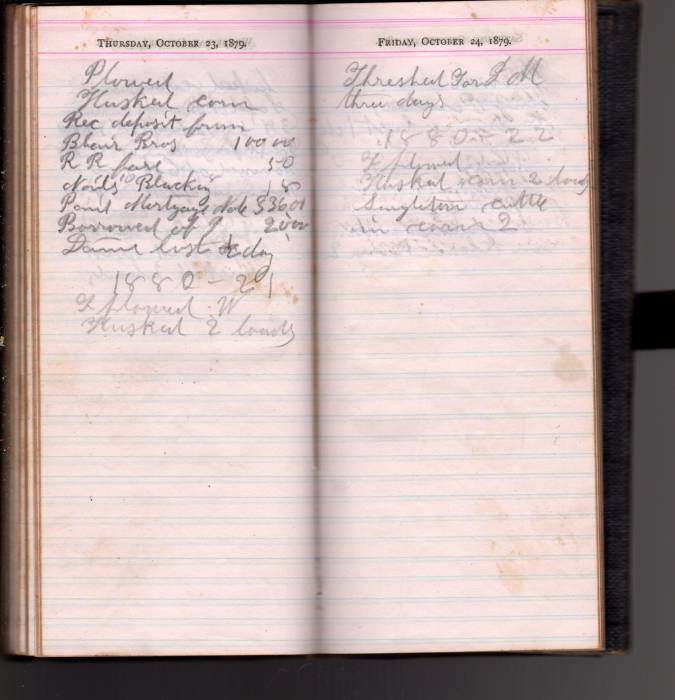 THURSDAY, OCTOBER 23, 1879.
Plowed
Husked corn
Rec deposit from
Blair Bros 100 00
R R fare 50
Nails Blacking
Paid Mortgage Note $3601
Borrowed of P 2000
lost day
1880 - 21
plowed W
Husked 2 loads
FRIDAY, OCTOBER 24, 1879.
Threshed For M
three days
1880 - 22
plowed
Husked corn 2 loads
Singleton cattle
in corn 2